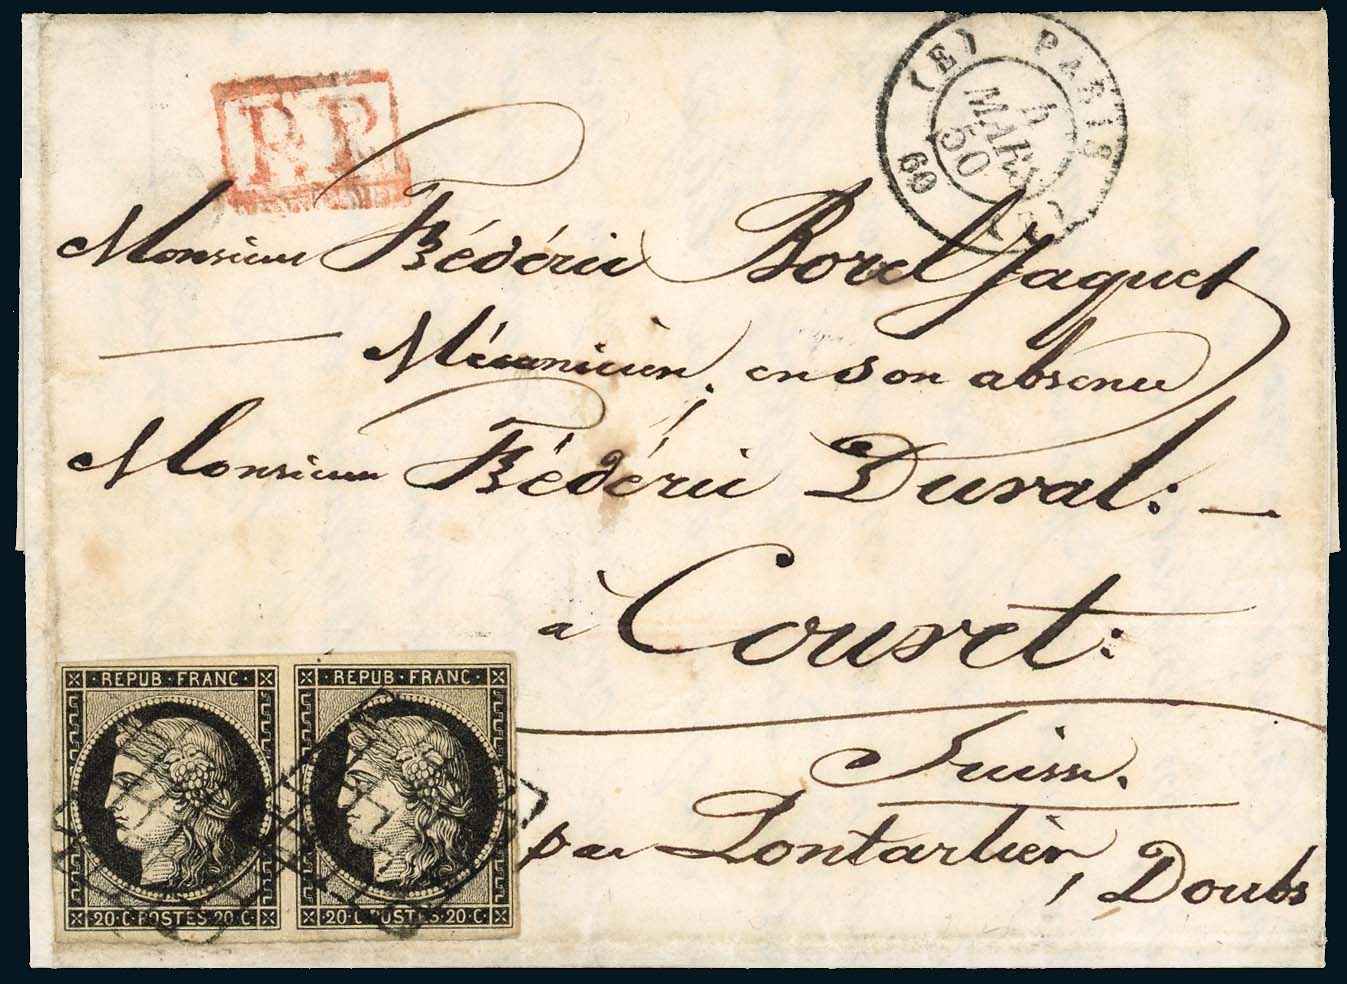 P.P.
(E) PARIS (E)
MARS
50
60
Monsieur Frédéric Borel Jaquet
Mécanicien, en son absence
Monsieur Frédéric Duval : —
à Couvet :
Suisse.
par Pontarlier, Doubs
REPUB · FRANC · REPUB · FRANC ·
20 · C · POSTES · 20 · C · 20 · C · POSTES · 20 · C ·